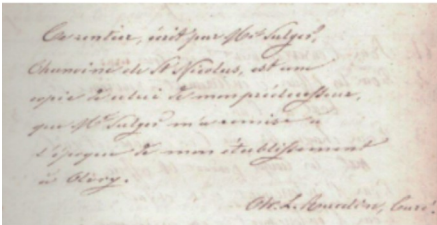 Ce rentier, écrit par Mr. Sulger,
Chanoine de St Nicolas, est une
copie de celui de mon prédécesseur,
que Mr. Sulger m'a remise à
l'époque de mon établissement
à Cléry.
Curé.